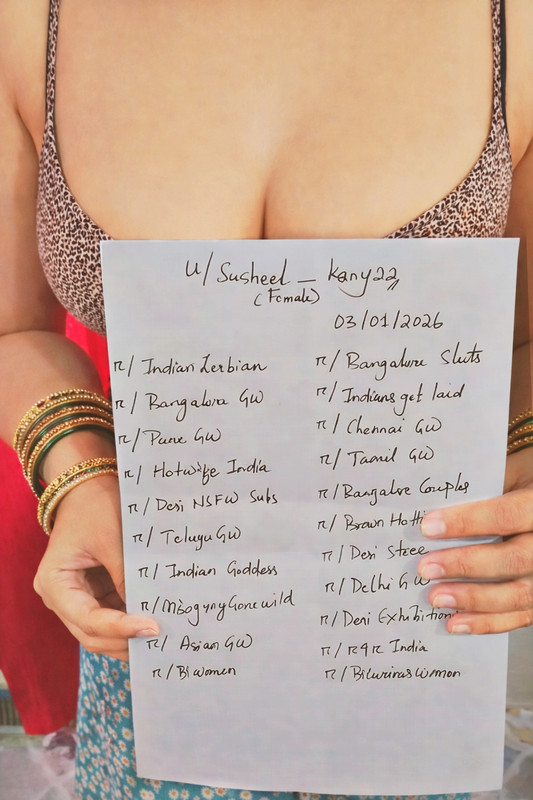 u/Susheel_Kany22
(Female)
03/01/2026
r/Indian Lesbian
r/Bangalore GW
r/Pune GW
r/Hotwife India
r/Desi NSFW Subs
r/TeluguGW
r/Indian Goddess
r/MisogynyGonewild
r/Asian GW
r/Bi women
r/Bangalore Sluts
r/Indians get laid
r/Chennai GW
r/Tamil GW
r/Bangalore Couples
r/Brown Hotti
r/Desi Stree
r/Delhi GW
r/Desi Exhibition
r/R4R India